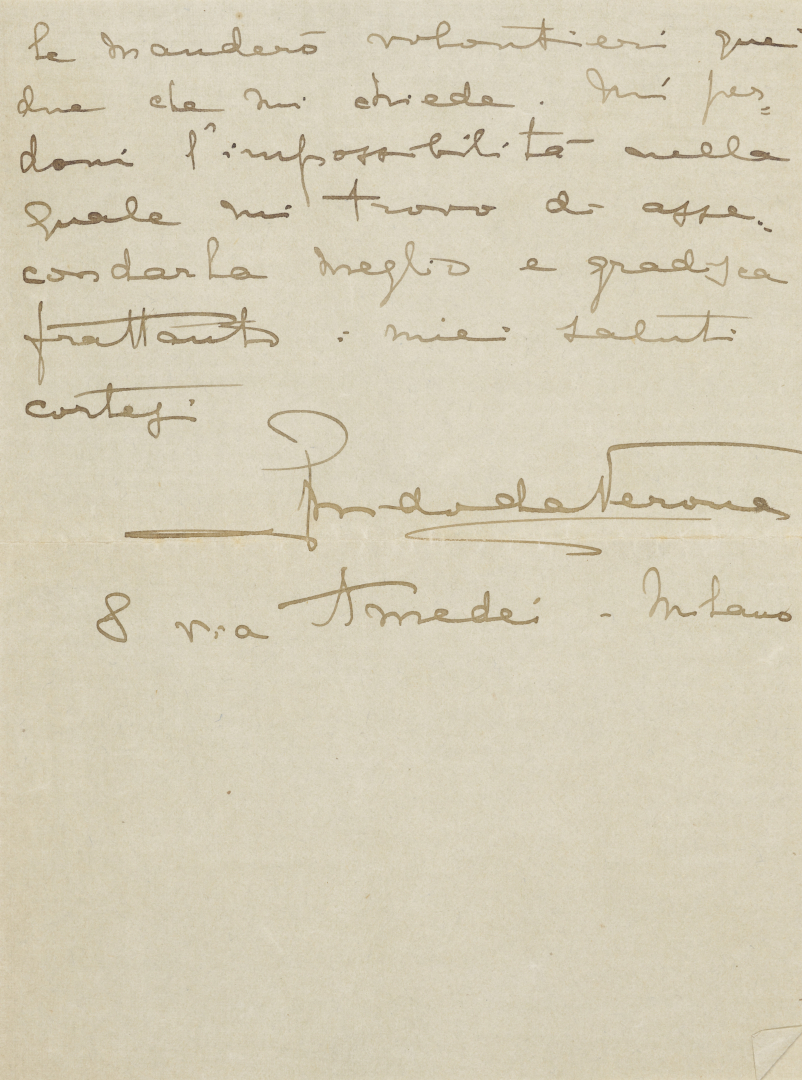 le manderò volontieri quei
due che mi chiede. Mi per=
doni l'impossibilità nella
quale mi trovo di asse-
condarla meglio e gradisca
frattanto i miei saluti
cortesi
Guido da Verona
8 via Amedei - Milano